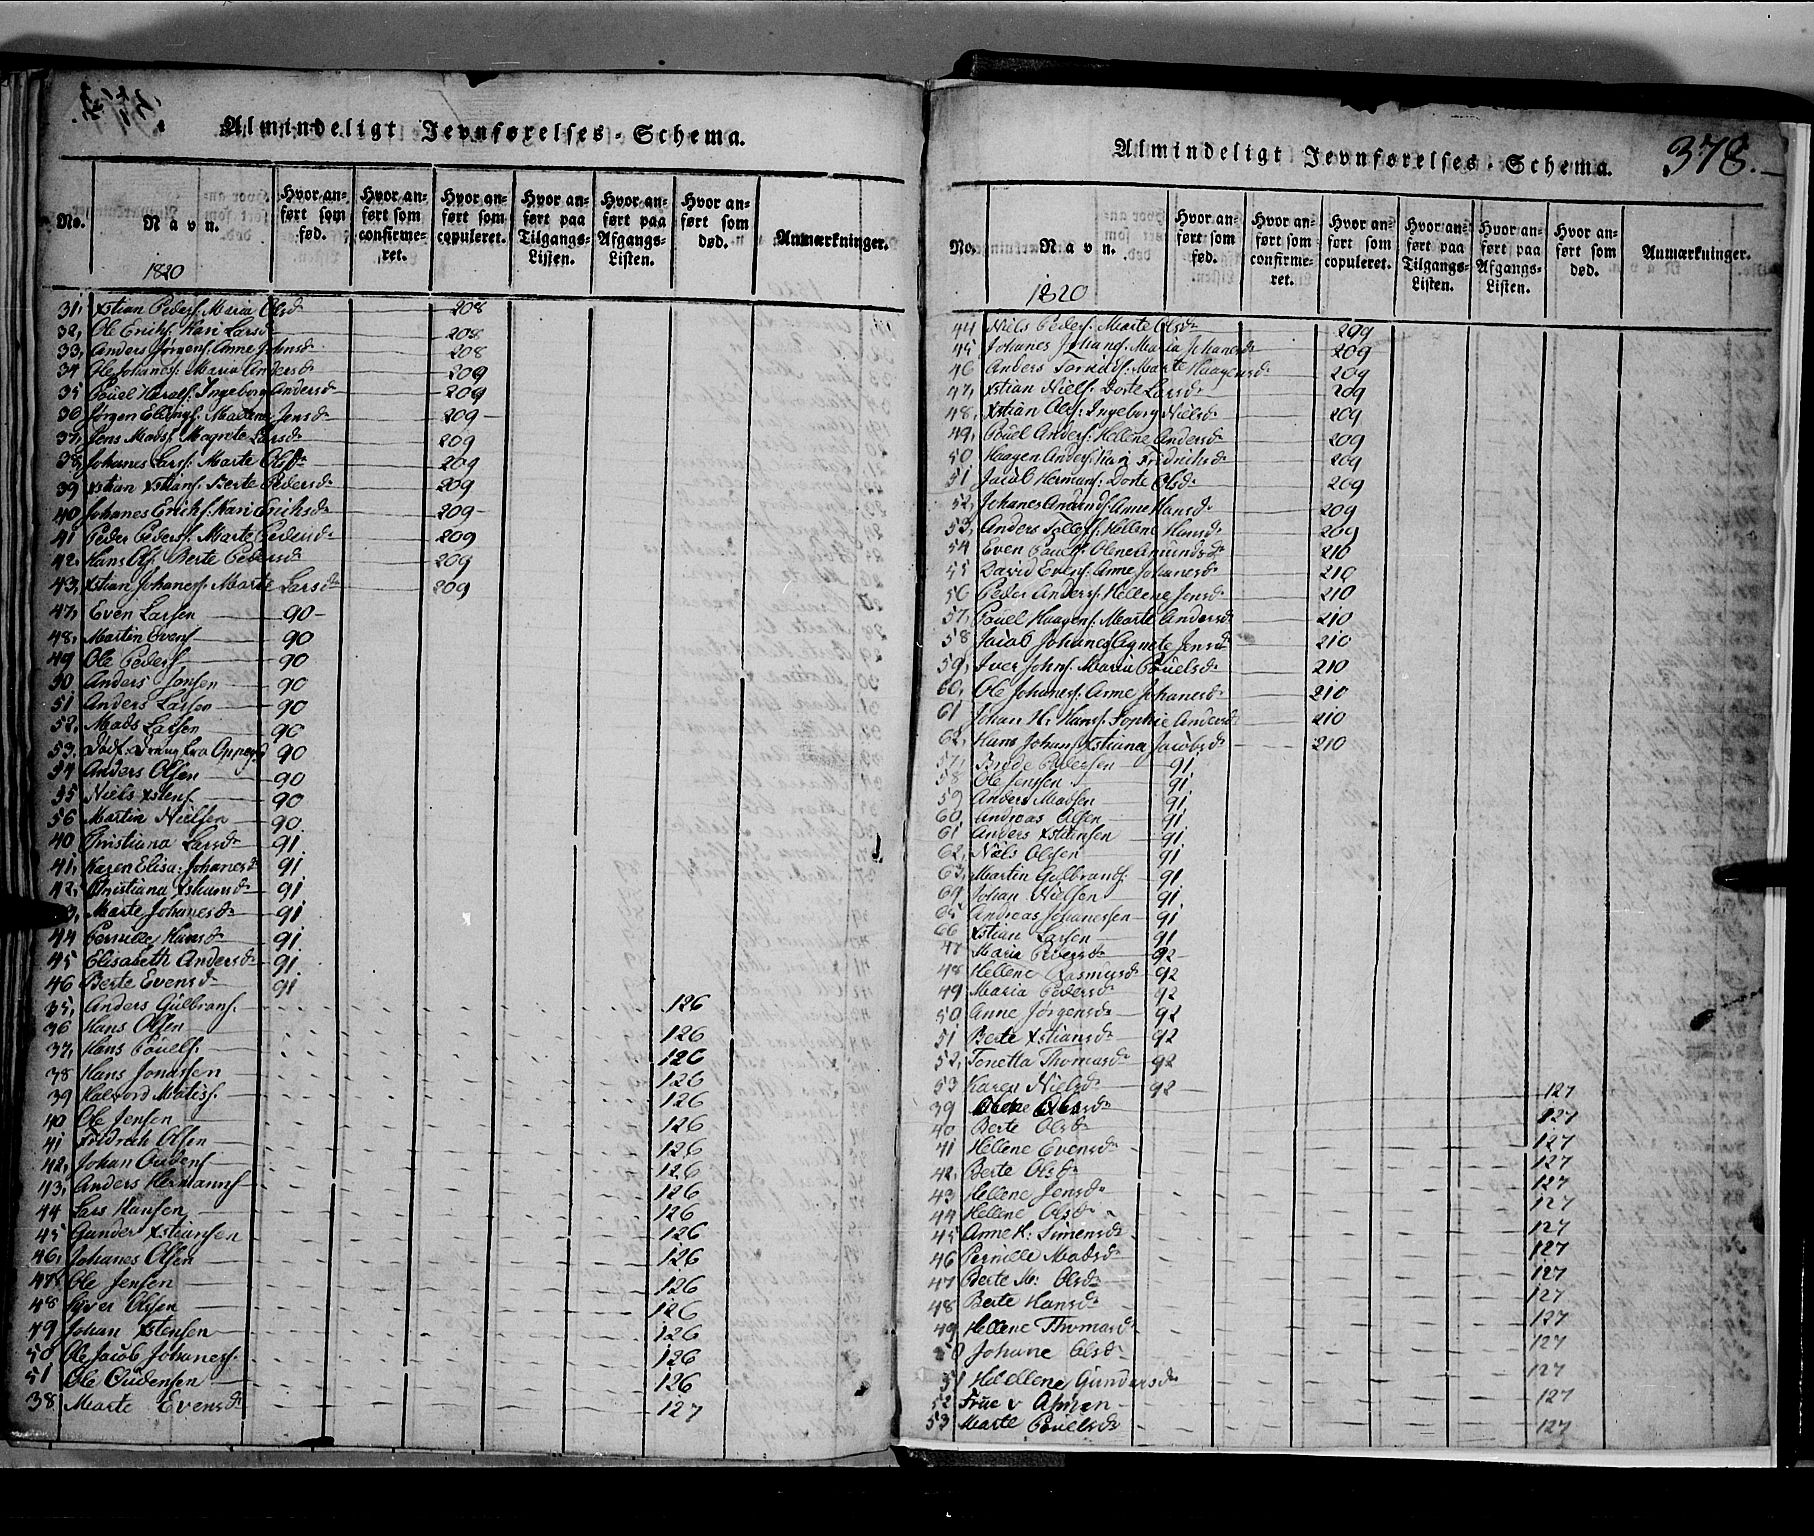 Almindeligt Jevnførelses-Schema.
No. Navn. Hvor anført som fød. Hvor anført som confirmeret. Hvor anført som copuleret. Hvor anført paa Tilgangs-Listen. Hvor anført paa Afgangs-Listen. Hvor anført som død. Anmærkninger.
1820
31, Xstian Peders: Maria Olsd 208
32, Ole Erichs: Kari Larsd 208
33, Anders Jørgens: Anne Johnsd 208
34 Ole Johanes: Maria Andersd 209
35 Pouel Ingeborg Andersd 209
36 Jørgen Mallene Jensd 209
37, Jens Mads: Magrete Larsd 209
38, Johanes Lars: Marte Olsd 209
39 Xstian Xstians: Berte Pedersd 209
40 Johanes Erichs: Kari Erichsd 209
41 Peder Peders: Marte Pedersd 209
42, Hans Ols: Berte Pedersd 209
43, Xstian Johanes: Marte Larsd 209
47, Even Larsen 90
48, Martin Evens 90
49 Ole Peders 90
50 Anders Jonsen 90
51 Anders Larsen 90
52, Mads Larsen 90
53, Dødf: Dreng fra 90
54 Anders Olsen 90
55 Niels Xstens 90
56 Martin Nielsen 90
40 Christiana Larsd 91
41, Karen Elisa: Johanesd 91
42, Christiana Xstiansd 91
43, Marte Johanesd 91
44 Pernille Hansd 91
45 Elisabeth Andersd 91
46 Berte Evensd 91
35, Anders Gülbrans. 126
36 Hans Olsen 126
37, Hans Pouels. 126
38 Hans Jonassen 126
39 Halvord Matis. 126
40 Ole Jensen 126
41 Fridrich Olsen 126
42, Johan Oudens 126
43, Anders Hermanns 126
44 Lars Hansen 126
45 Gunder Xstiansen 126
46, Johanes Olsen 126
47 Ole Jensen 126
48 Iver Olsen 126
49 Johan Xstensen 126
50 Ole Jacob Johanes. 126
51 Ole Oudensen 126
38 Marte Evensd 127
Almindeligt Jevnførelses-Schema. 378.
No. Navn. Hvor anført som fød. Hvor anført som confirmeret. Hvor anført som copuleret. Hvor anført paa Tilgangs-Listen. Hvor anført paa Afgangs-Listen. Hvor anført som død. Anmærkninger.
1820
44 Niels Peders: Marte Olsd 209
45 Johanes Johanes: Maria Johanesd 209
46 Anders Marte Haagensd 209
47, Xstian Niels: Dorte Larsd 209
48, Xstian Ols: Ingeborg Nielsd 209
49, Pouel Anders: Hellene Andersd 209
50 Haagen Anders: Kari Fredrichsd 209
51 Jacob Hermans: Dorte Olsd 209
52, Johanes Amunds: Anne Hansd 209
53, Anders Tollefs: Hellene Hansd 209
54 Even Pouels: Olene Amundsd 210
55 David Evens: Anne Johanesd 210
56 Peder Anders: Hellene Jensd 210
57, Pouel Haagens: Marte Andersd 210
58 Jacob Johanes: Agnete Jensd 210
59, Iver Johns: Maria Pouelsd 210
60, Ole Johanes: Anne Johanesd 210
61 Johan H: Hans: Sophie Andersd 210
62, Hans Johans: Xstiana Jacobsd 210
57, Brede Pedersen 91
58 Ole Jensen 91
59 Anders Madsen 91
60, Andreas Olsen 91
61 Anders Xstensen 91
62, Niels Olsen 91
63, Martin Gulbrands. 91
64 Johan Nielsen 91
65 Andreas Johanessen 91
66 Xstian Larsen 91
47 Maria Pedersd 92
48 Hellene Rasmusd 92
49 Maria Pedersd 92
50 Anne Jørgensd 92
51 Berte Xstiansd 92
52, Tonetta Thomasd 92
53 Karen Nielsd 92
39 Olsd 127
40 Berte Olsd 127
41 Hellene Evensd 127
42, Berte Olsd 127
43 Hellene Jensd 127
44 Hellene Olsd 127
45 Anne K: Simensd 127
46 Pernille Madsd 127
47 Berte M: Olsd 127
48 Berte Hansd 127
49 Hellene Thomasd 127
50 Johane Olsd 127
51 Hellene Gundersd 127
52 Frue v 127
53 Marte Pouelsd 127